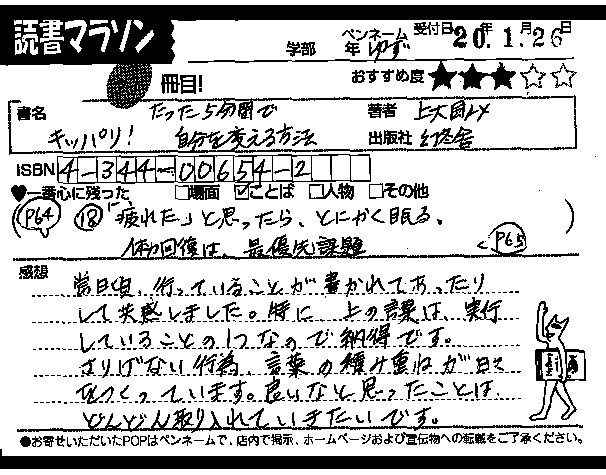 読書マラソン
学部 年 ペンネーム ゆず 受付日 20年1月26日
冊目! おすすめ度 ★★★☆☆
書名 たった5分間で 著者 上大岡トメ
キッパリ! 自分を変える方法 出版社 幻冬舎
ISBN 4-344-00654-2
♥一番心に残った □場面 ☑ことば □人物 □その他
(P64 ⑱「疲れた」と思ったら、とにかく眠る。)
体力回復は、最優先課題 P65
感想
常日頃、行っていることが書かれてあったり
して共感しました。特に 上の言葉は、実行
していることの1つなので納得です。
さりげない行為、言葉の積み重ねが日々
をつくっています。良いなと思ったことは、
どんどん取り入れていきたいです。
●お寄せいただいたPOPはペンネームで、店内で掲示、ホームページおよび宣伝物への転載をご了承ください。